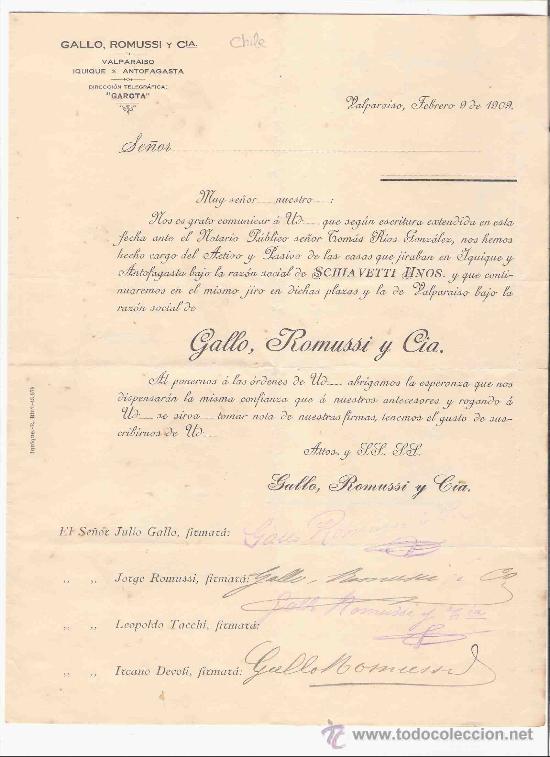 GALLO, ROMUSSI Y CIA.
Chile
VALPARAISO
IQUIQUE & ANTOFAGASTA
DIRECCIÓN TELEGRÁFICA:
"GAROTA"
Valparaiso, Febrero 9 de 1909.
Señor
Muy señor nuestro:
Nos es grato comunicar á Ud que según escritura extendida en esta
fecha ante el Notario Público señor Tomás Rios González, nos hemos
hecho cargo del Activo y Pasivo de las casas que jiraban en Iquique y
Antofagasta bajo la razón social de SCHIAVETTI HNOS. y que conti-
nuaremos en el mismo jiro en dichas plazas y la de Valparaiso bajo la
razón social de
Gallo, Romussi y Cia.
Al ponernos á las órdenes de Ud abrigamos la esperanza que nos
dispensarán la misma confianza que á nuestros antecesores y rogando á
Ud se sirva tomar nota de nuestras firmas, tenemos el gusto de sus-
cribirnos de Ud
Attos. y S.S. S.S.
Gallo, Romussi y Cia.
El Señor Julio Gallo, firmará: Gallo Romussi
„ „ Jorge Romussi, firmará: Gallo, Romussi i Ca
Gallo Romussi y Cia
„ „ Leopoldo Tacchi, firmará:
„ „ Ircano Devoti, firmará: Gallo Romussi
www.todocoleccion.net